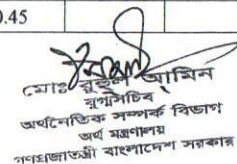 0.45
মোঃ রুহুল আমিন
যুগ্মসচিব
অর্থনৈতিক সম্পর্ক বিভাগ
অর্থ মন্ত্রণালয়
গণপ্রজাতন্ত্রী বাংলাদেশ সরকার